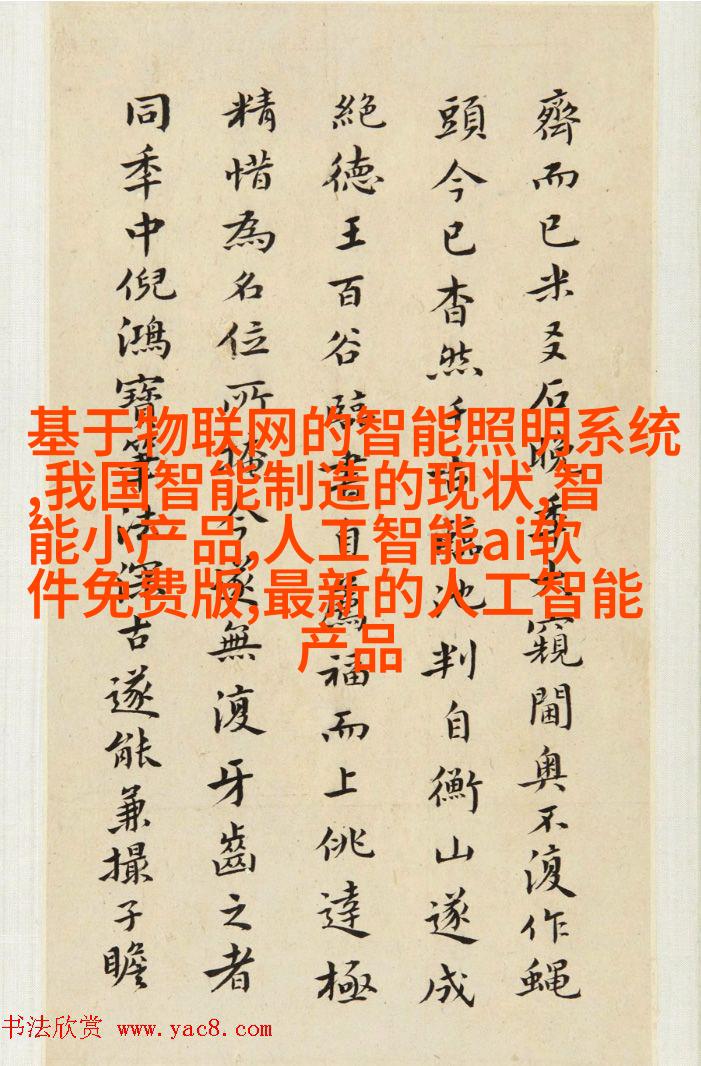 齊而已米友石晚季大窺閫奥不復作蝇
頭今已杳然臨池判自衡山遂成
絕德王百谷臨書自薦福而上佻達極
精惜為名位所今遂無復牙齒之者
同年中倪鴻寶筆法深古遂能兼撮子瞻
基于物联网的智能照明系统
,我国智能制造的现状,智
能小产品,人工智能ai软
件免费版,最新的人工智能
产品
书法欣赏 www.yac8.com